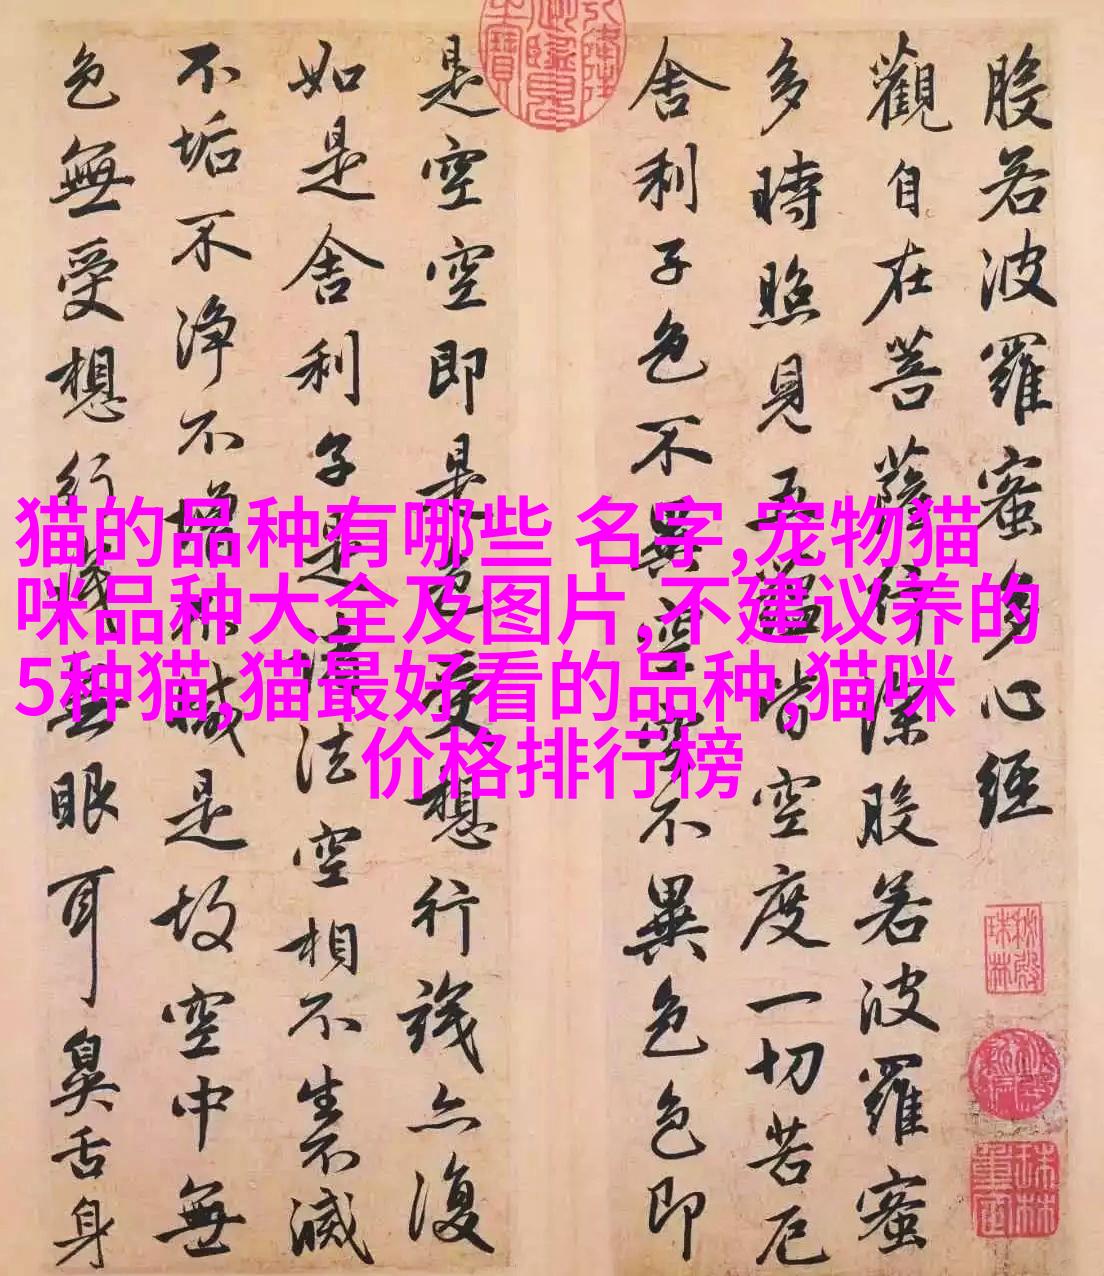 般若波羅蜜多心經
觀自在菩薩行深般若波羅蜜
多時照見五蘊皆空度一切苦厄
舍利子色不異空空不異色色即
是空空即是色受想行識亦復
如是舍利子是諸法空相不生不滅
不垢不淨不增不減是故空中無
色無受想行識無眼耳鼻舌身
猫的品种有哪些 名字,宠物猫
咪品种大全及图片,不建议养的
5种猫,猫最好看的品种,猫咪
价格排行榜